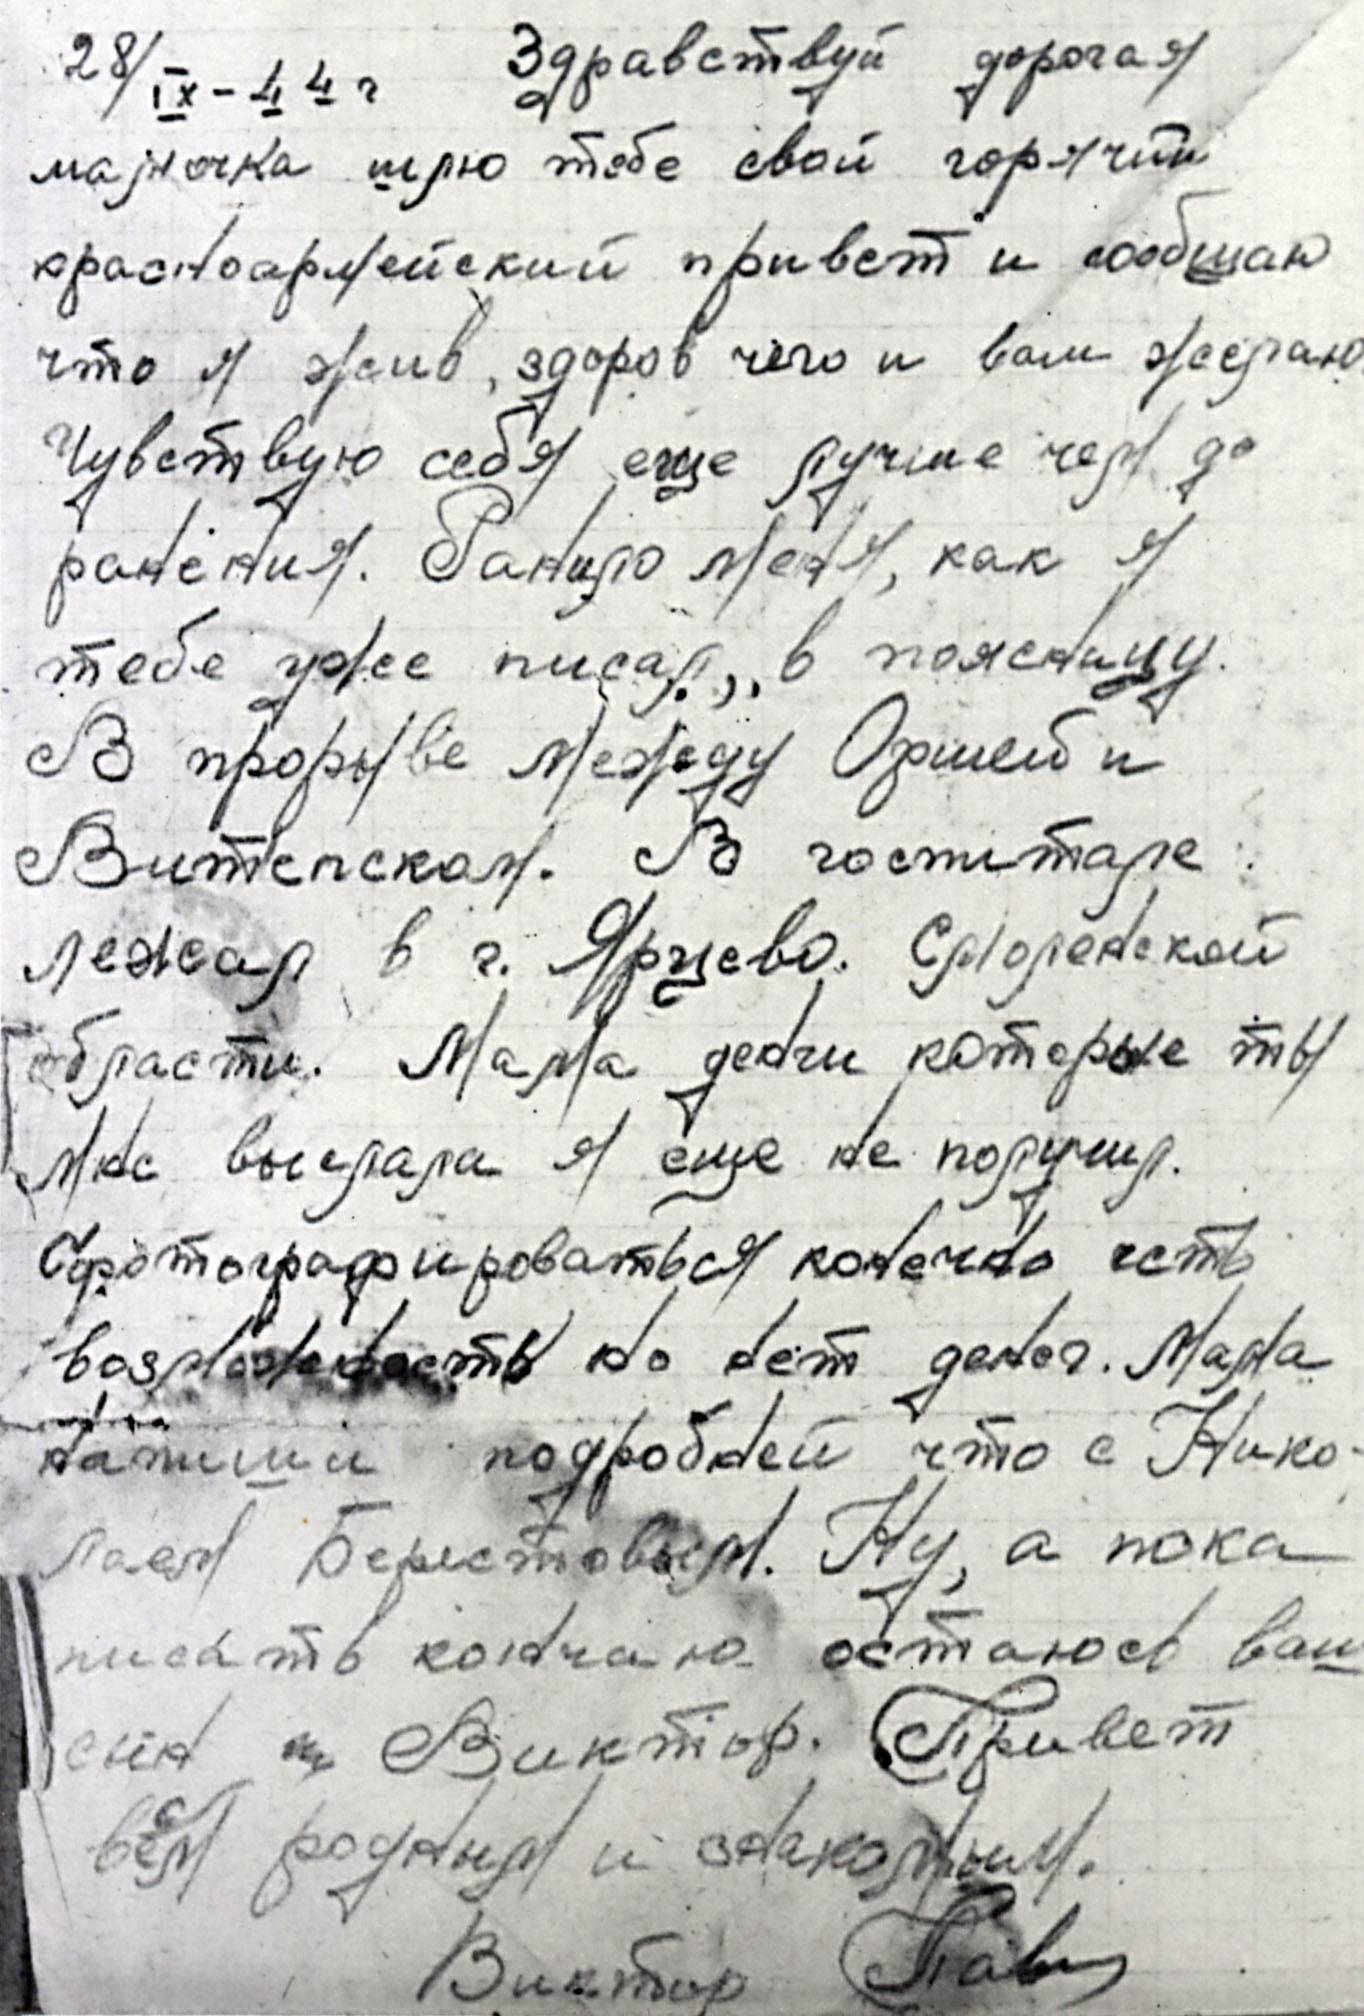 28/IX-44 г Здравствуй дорогая
мамочка шлю тебе свой горячий
красноармейский привет и сообщаю
что я жив, здоров чего и вам желаю.
Чувствую себя еще лучше чем до
ранения. Ранило меня, как я
тебе уже писал, в поясницу.
В прорыве между Оршей и
Витепском. В госпитале
лежал в г. Ярцево. Смоленской
области. Мама денги которые ты
мне выслала я еще не получил.
Сфотографироваться конечно есть
возможность но нет денег. Мама
напиши подробней что с Нико-
лаем Берестовым. Ну, а пока
писать кончаю остаюсь ваш
сын Виктор. Привет
всем родным и знакомым.
Виктор